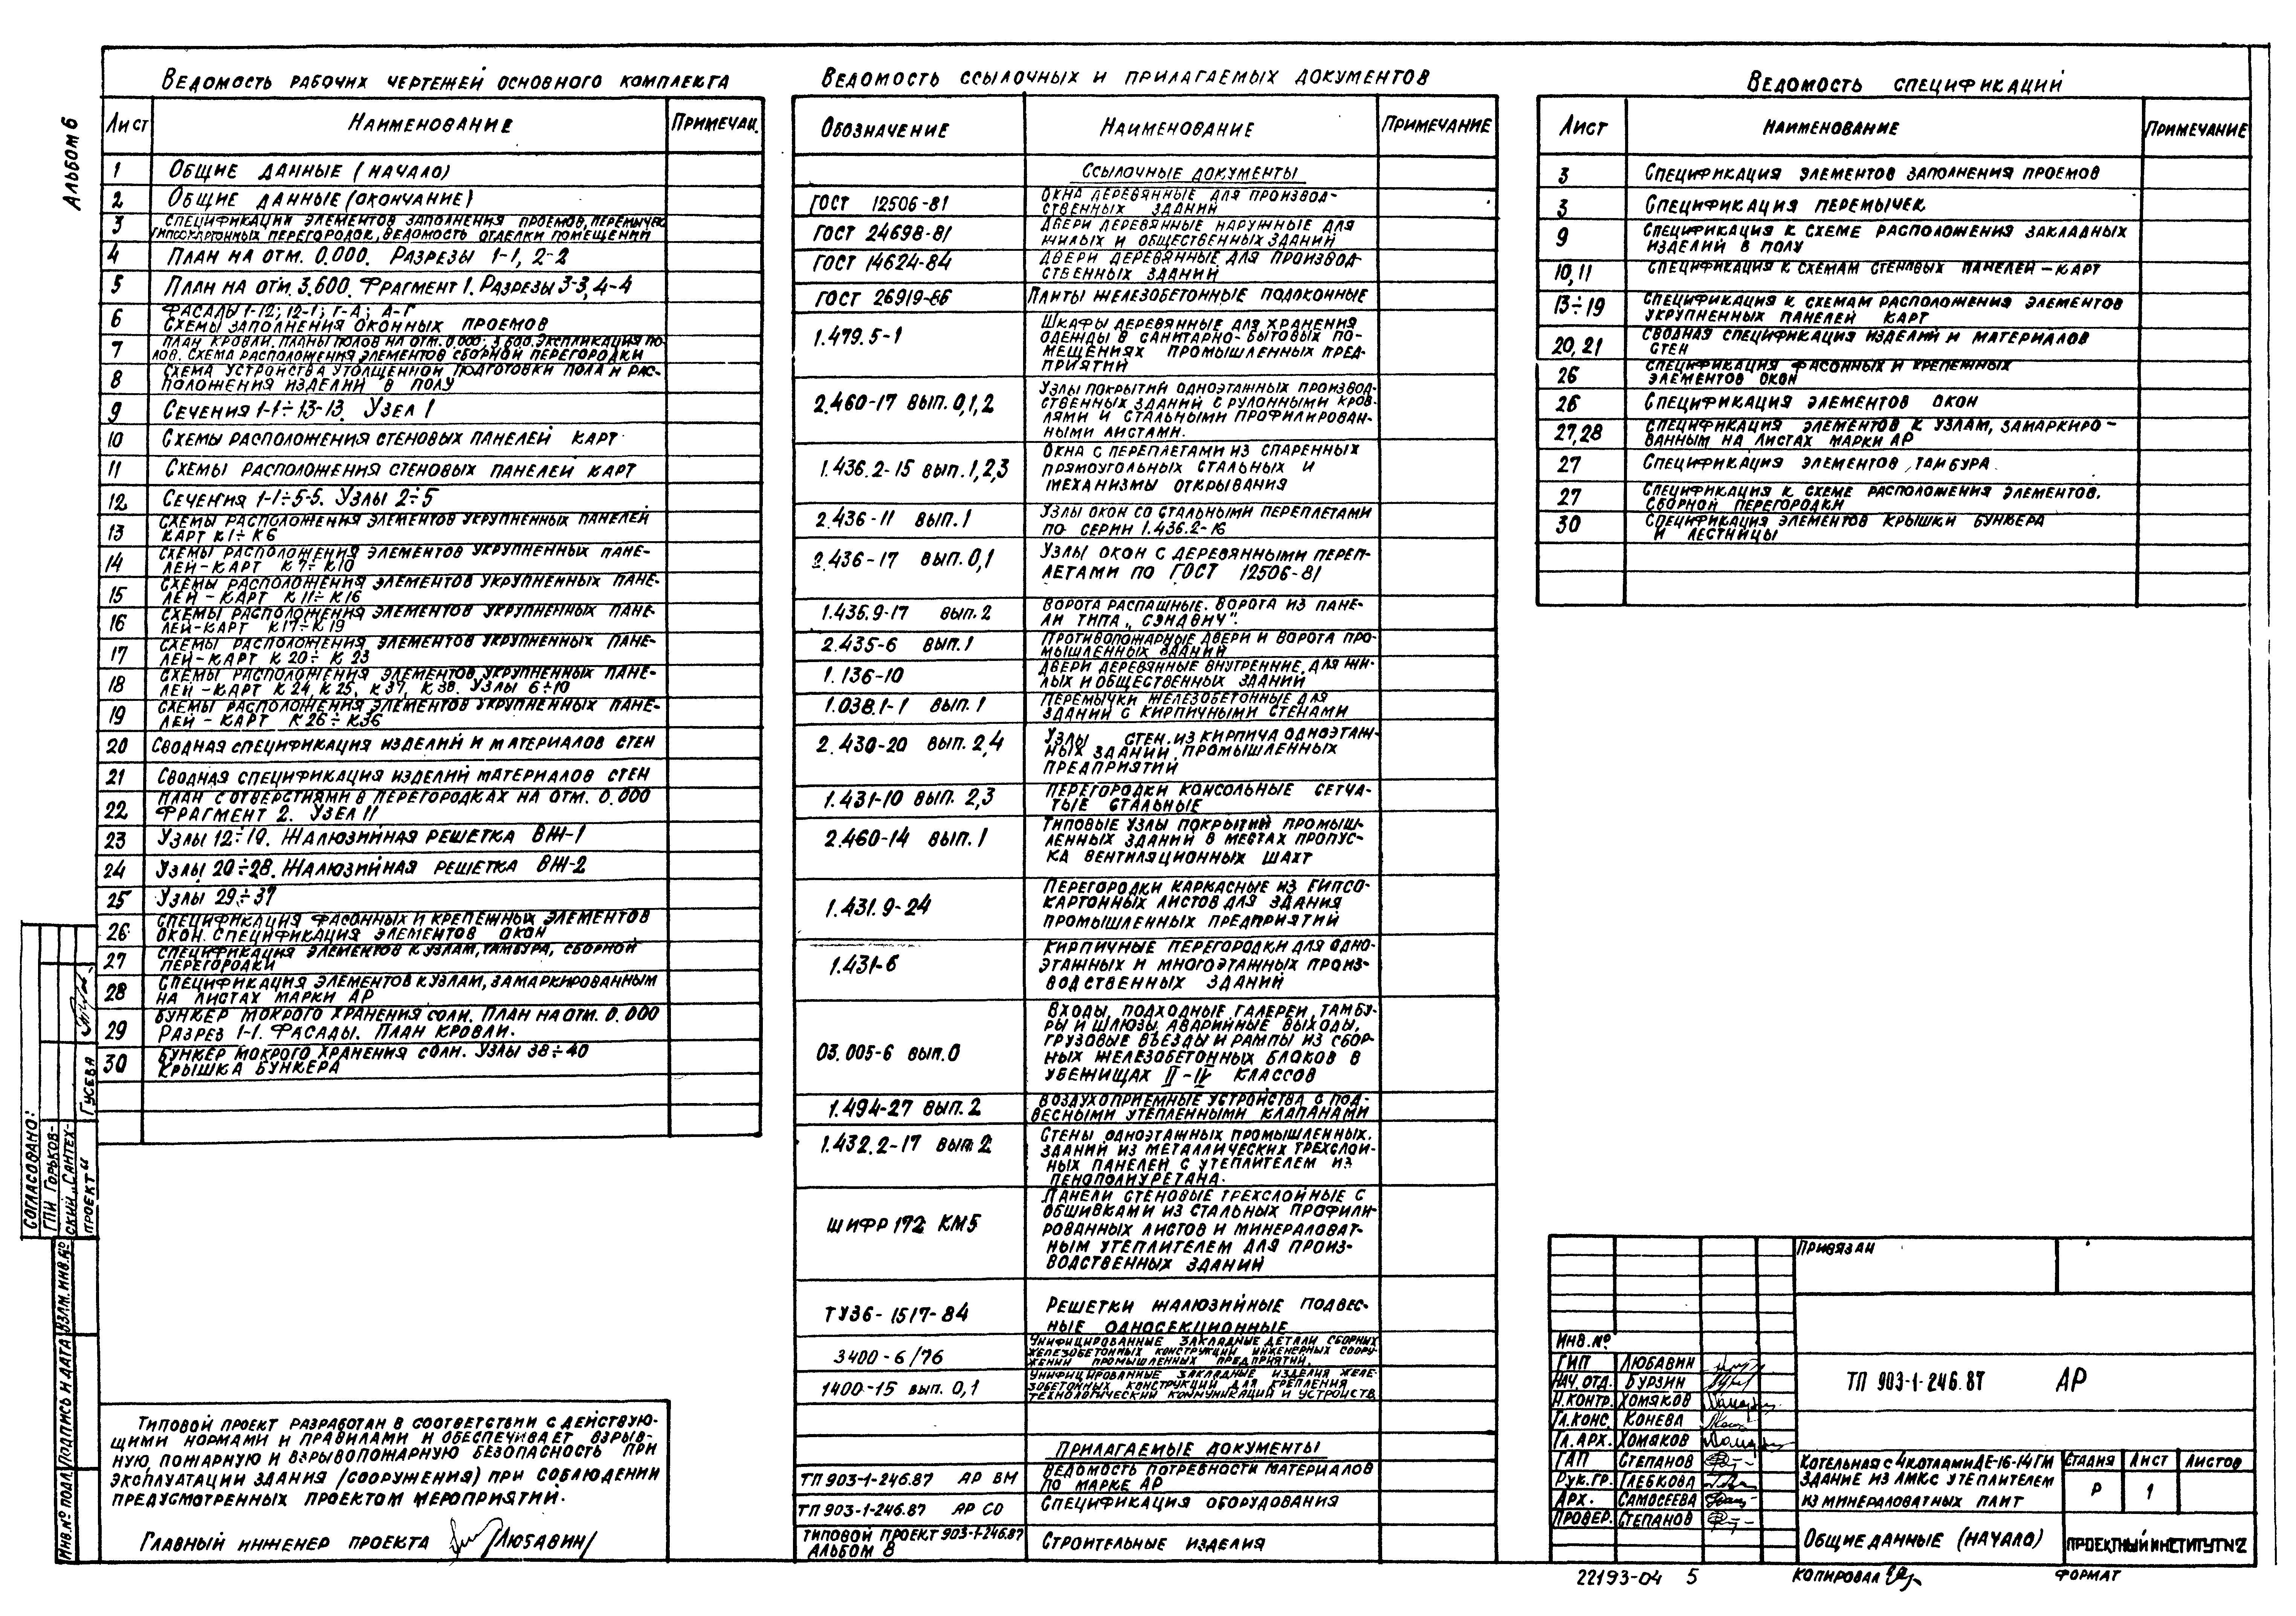 Альбом 6
Ведомость рабочих чертежей основного комплекта
Лист
Наименование
Примечан.
1
Общие данные (начало)
2
Общие данные (окончание)
3
Спецификации элементов заполнения проемов, перемычек
гипсокартонных перегородок, ведомость отделки помещений
4
План на отм. 0.000. Разрезы 1-1, 2-2
5
План на отм. 3.600. Фрагмент 1. Разрезы 3-3, 4-4
6
Фасады 1-12; 12-1; Г-А; А-Г
Схемы заполнения оконных проемов
7
План кровли. Планы полов на отм. 0.000; 3.600. Экспликация по-
лов. Схема расположения элементов сборной перегородки
8
Схема устройства утолщенной подготовки пола и рас-
положения изделий в полу
9
Сечения 1-1÷13-13. Узел 1
10
Схемы расположения стеновых панелей карт
11
Схемы расположения стеновых панелей карт
12
Сечения 1-1÷5-5. Узлы 2÷5
13
Схемы расположения элементов укрупненных панелей
карт К1÷К6
14
Схемы расположения элементов укрупненных пане-
лей-карт К7÷К10
15
Схемы расположения элементов укрупненных пане-
лей-карт К11÷К16
16
Схемы расположения элементов укрупненных пане-
лей-карт К17÷К19
17
Схемы расположения элементов укрупненных пане-
лей-карт К20÷К23
18
Схемы расположения элементов укрупненных пане-
лей-карт К24, К25, К37, К38. Узлы 6÷10
19
Схемы расположения элементов укрупненных пане-
лей-карт К26÷К36
20
Сводная спецификация изделий и материалов стен
21
Сводная спецификация изделий материалов стен
22
План с отверстиями в перегородках на отм. 0.000
Фрагмент 2. Узел 11
23
Узлы 12÷19. Жалюзийная решетка ВЖ-1
24
Узлы 20÷28. Жалюзийная решетка ВЖ-2
25
Узлы 29÷37
26
Спецификация фасонных и крепежных элементов
окон. Спецификация элементов окон
27
Спецификация элементов к узлам, тамбура, сборной
перегородки
28
Спецификация элементов к узлам, замаркированным
на листах марки АР
29
Бункер мокрого хранения соли. План на отм. 0.000
Разрез 1-1. Фасады. План кровли.
30
Бункер мокрого хранения соли. Узлы 38÷40
Крышка бункера
Типовой проект разработан в соответствии с действую-
щими нормами и правилами и обеспечивает взрыв-
ную, пожарную и взрывопожарную безопасность при
эксплуатации здания (сооружения) при соблюдении
предусмотренных проектом мероприятий.
Главный инженер проекта /Любавин/
Ведомость ссылочных и прилагаемых документов
Обозначение
Наименование
Примечание
Ссылочные документы
ГОСТ 12506-81
Окна деревянные для производ-
ственных зданий
ГОСТ 24698-81
Двери деревянные наружные для
жилых и общественных зданий
ГОСТ 14624-84
Двери деревянные для производ-
ственных зданий
ГОСТ 26919-86
Плиты железобетонные подоконные
1.479.5-1
Шкафы деревянные для хранения
одежды в санитарно-бытовых по-
мещениях промышленных пред-
приятий
2.460-17 вып. 0,1,2
Узлы покрытий одноэтажных производ-
ственных зданий с рулонными кров-
лями и стальными профилирован-
ными листами.
1.436.2-15 вып. 1,2,3
Окна с переплетами из спаренных
прямоугольных стальных и
механизмы открывания
2.436-11 вып. 1
Узлы окон со стальными переплетами
по серии 1.436.2-16
2.436-17 вып. 0,1
Узлы окон с деревянными переп-
летами по ГОСТ 12506-81
1.435.9-17 вып. 2
Ворота распашные. Ворота из пане-
ли типа „Сэндвич".
2.435-6 вып. 1
Противопожарные двери и ворота про-
мышленных зданий
1.136-10
Двери деревянные внутренние для жи-
лых и общественных зданий
1.038.1-1 вып. 1
Перемычки железобетонные для
зданий с кирпичными стенами
2.430-20 вып. 2,4
Узлы стен из кирпича одноэтаж-
ных зданий промышленных
предприятий
1.431-10 вып. 2,3
Перегородки консольные сетча-
тые стальные
2.460-14 вып. 1
Типовые узлы покрытий промыш-
ленных зданий в местах пропус-
ка вентиляционных шахт
1.431.9-24
Перегородки каркасные из гипсо-
картонных листов для здания
промышленных предприятий
1.431-6
Кирпичные перегородки для одно-
этажных и многоэтажных произ-
водственных зданий
03.005-6 вып. 0
Входы, подходные галереи, тамбу-
ры и шлюзы, аварийные выходы,
грузовые въезды и рампы из сбор-
ных железобетонных блоков в
убежищах II-IV классов
1.494-27 вып. 2
Воздухоприемные устройства с под-
весными утепленными клапанами
1.432.2-17 вып. 2
Стены одноэтажных промышленных
зданий из металлических трехслой-
ных панелей с утеплителем из
пенополиуретана.
Шифр 172 КМ5
Панели стеновые трехслойные с
обшивками из стальных профили-
рованных листов и минераловат-
ным утеплителем для произ-
водственных зданий
ТУ36-1517-84
Решетки жалюзийные подвес-
ные односекционные
3400-6/76
Унифицированные закладные детали сборных
железобетонных конструкций инженерных соору-
жений промышленных предприятий.
1400-15 вып. 0,1
Унифицированные закладные изделия желе-
зобетонных конструкций для крепления
технологических коммуникаций и устройств
Прилагаемые документы
ТП 903-1-246.87 АР ВМ
Ведомость потребности материалов
по марке АР
ТП 903-1-246.87 АР СО
Спецификация оборудования
Типовой проект 903-1-246.87
Альбом 8
Строительные изделия
Ведомость спецификаций
Лист
Наименование
Примечание
3
Спецификация элементов заполнения проемов
3
Спецификация перемычек
9
Спецификация к схеме расположения закладных
изделий в полу
10,11
Спецификация к схемам стеновых панелей-карт
13÷19
Спецификация к схемам расположения элементов
укрупненных панелей карт
20,21
Сводная спецификация изделий и материалов
стен
26
Спецификация фасонных и крепежных
элементов окон
26
Спецификация элементов окон
27,28
Спецификация элементов к узлам, замаркиро-
ванным на листах марки АР
27
Спецификация элементов тамбура
27
Спецификация к схеме расположения элементов.
Сборной перегородки
30
Спецификация элементов крышки бункера
и лестницы
Согласовано:
ГПИ Горьков-
ский „Сантех-
проект"
Гусева
Взам. инв. №
Подпись и дата
Инв. № подл.
Привязан
Инв. №
ГИП Любавин
Нач. отд. Бурзин
Н. контр. Хомяков
Гл. конс. Конева
Гл. арх. Хомяков
ГАП Степанов
Рук. гр. Глебкова
Арх. Самосеева
Провер. Степанов
ТП 903-1-246.87 АР
Котельная с 4 котлами ДЕ-16-14ГМ
Здание из ЛМК с утеплителем
из минераловатных плит
Стадия
Лист
Листов
Р
1
Общие данные (начало)
Проектный институт №2
22193-04 5
Копировал
Формат